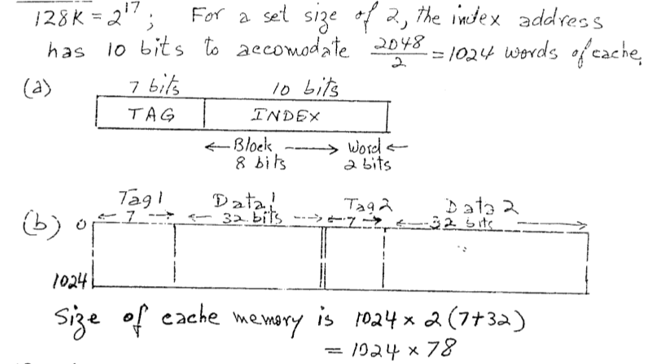 128K = 2^17; For a set size of 2, the index address
has 10 bits to accomodate 2048/2 = 1024 words of cache.
(a)
7 bits 10 bits
TAG INDEX
Block Word
8 bits 2 bits
(b)
Tag 1 Data 1 Tag 2 Data 2
0 7 32 bits 7 32 bits
1024
Size of cache memory is 1024 × 2 (7+32)
= 1024 × 78